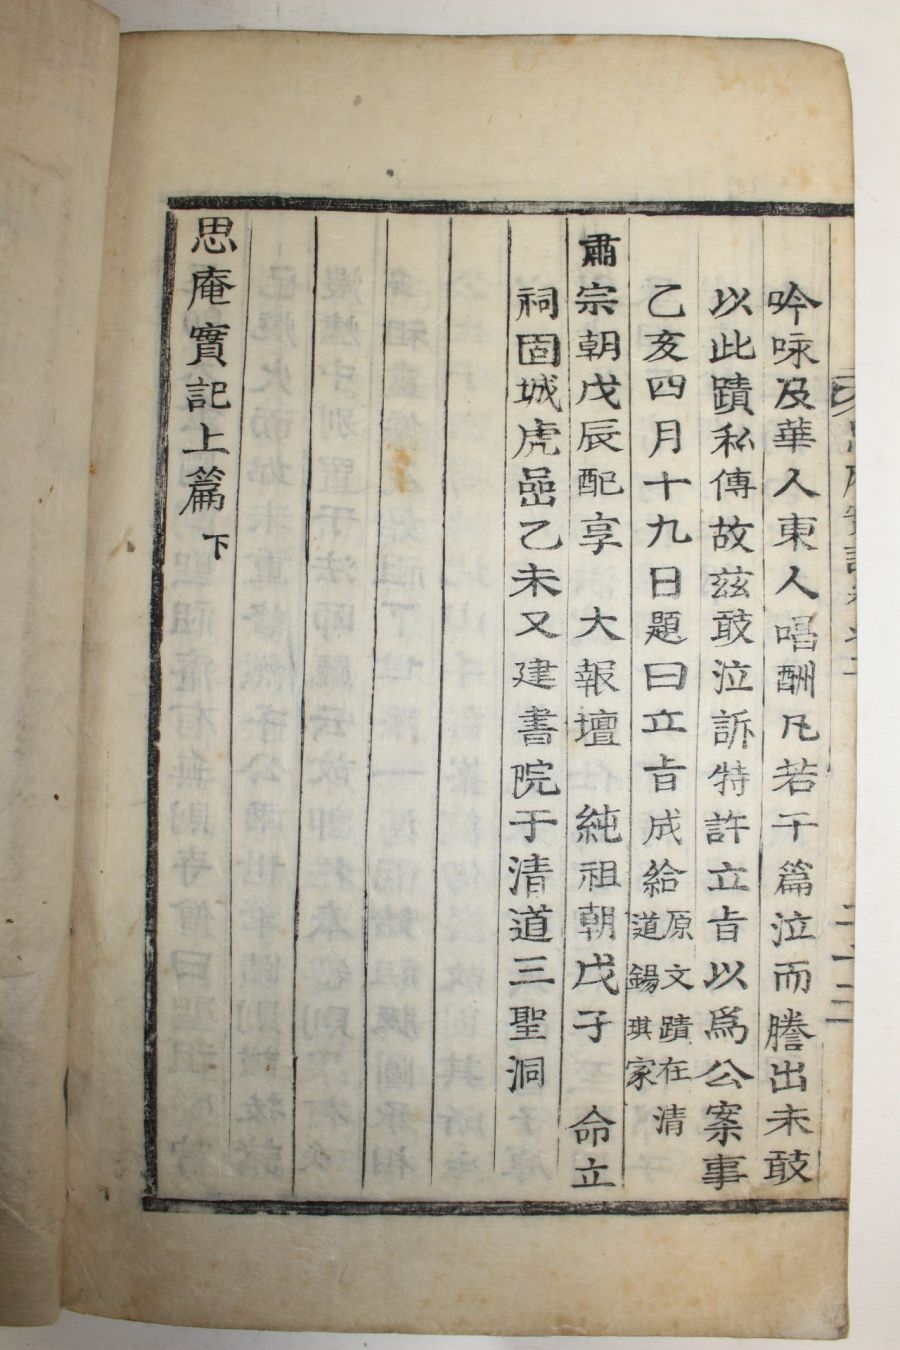 吟咏及華人東人唱酬凡若干篇泣而謄出未敢
以此蹟私傳故茲敢泣訴特許立旨以爲公案事
乙亥四月十九日題曰立旨成給原文蹟在清道錫琪家
肅宗朝戊辰配享 大報壇 純祖朝戊子 命立
祠固城虎嵒乙未又建書院于清道三聖洞
思庵實記上篇 下